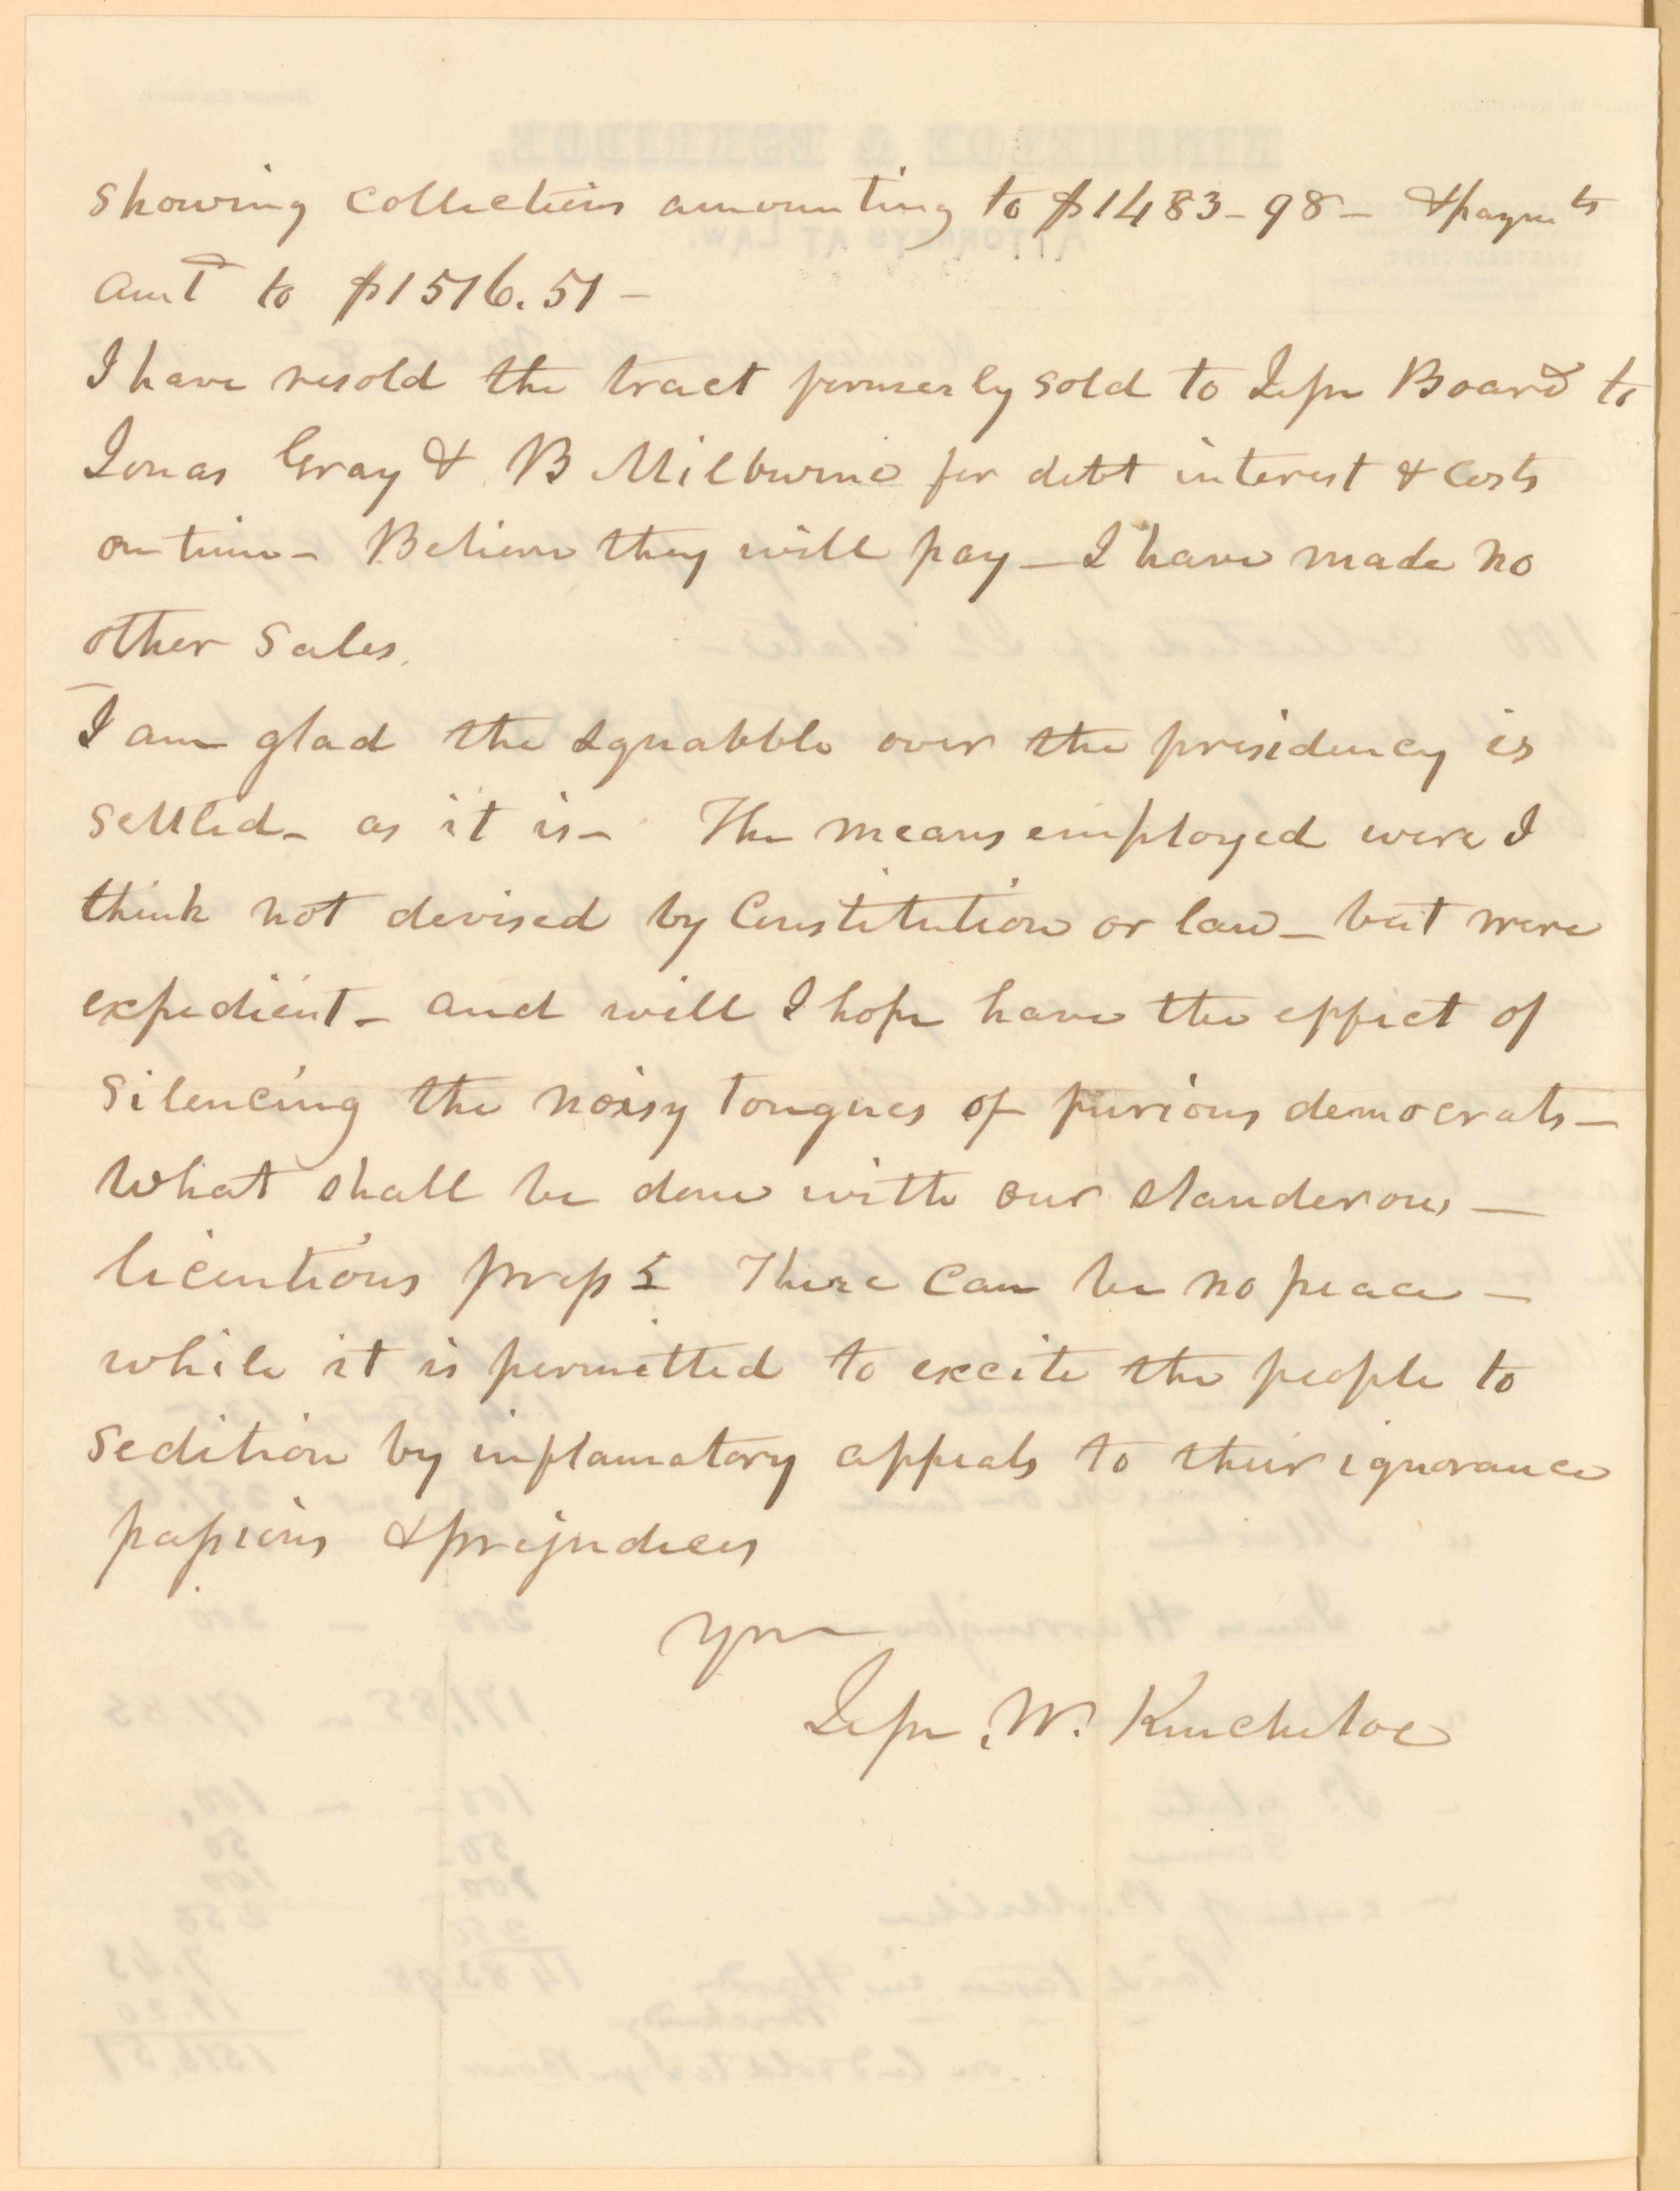 showing collections amounting to $1483-98- & paymts
amt to $1516.51-
I have resold the tract formerly sold to Jesse Board to
Jonas Gray & B Milburne for debt interest & costs
on time- Believe they will pay- I have made no
other sales.
I am glad the squabble over the presidency is
settled- as it is- The means employed were I
think not devised by Constitution or law- but were
expedient- and will I hope have the effect of
silencing the noisy tongues of furious democrats-
What shall be done with our slanderous-
licentious press There can be no peace-
while it is permitted to excite the people to
sedition by inflamatory appeals to their ignorance
passions & prejudices
Yrs
Jesse W. Kincheloe
KINCHELOE & ESKRIDGE,
ATTORNEYS AT LAW.